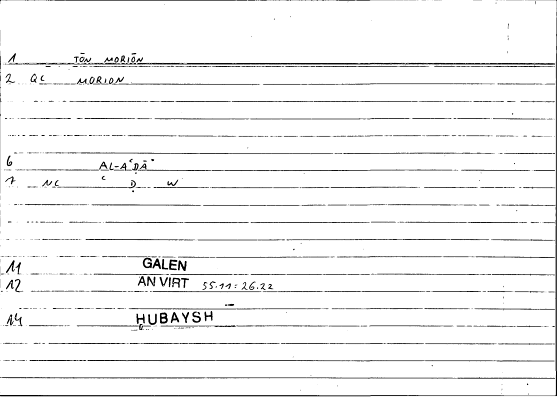 1 TŌN MORIŌN
2 QC MORION
6 AL-AʿḌĀʾ
7 NC ʿ Ḍ W
11 GALEN
12 AN VIRT 55.11:26.22
14 ḤUBAYSH